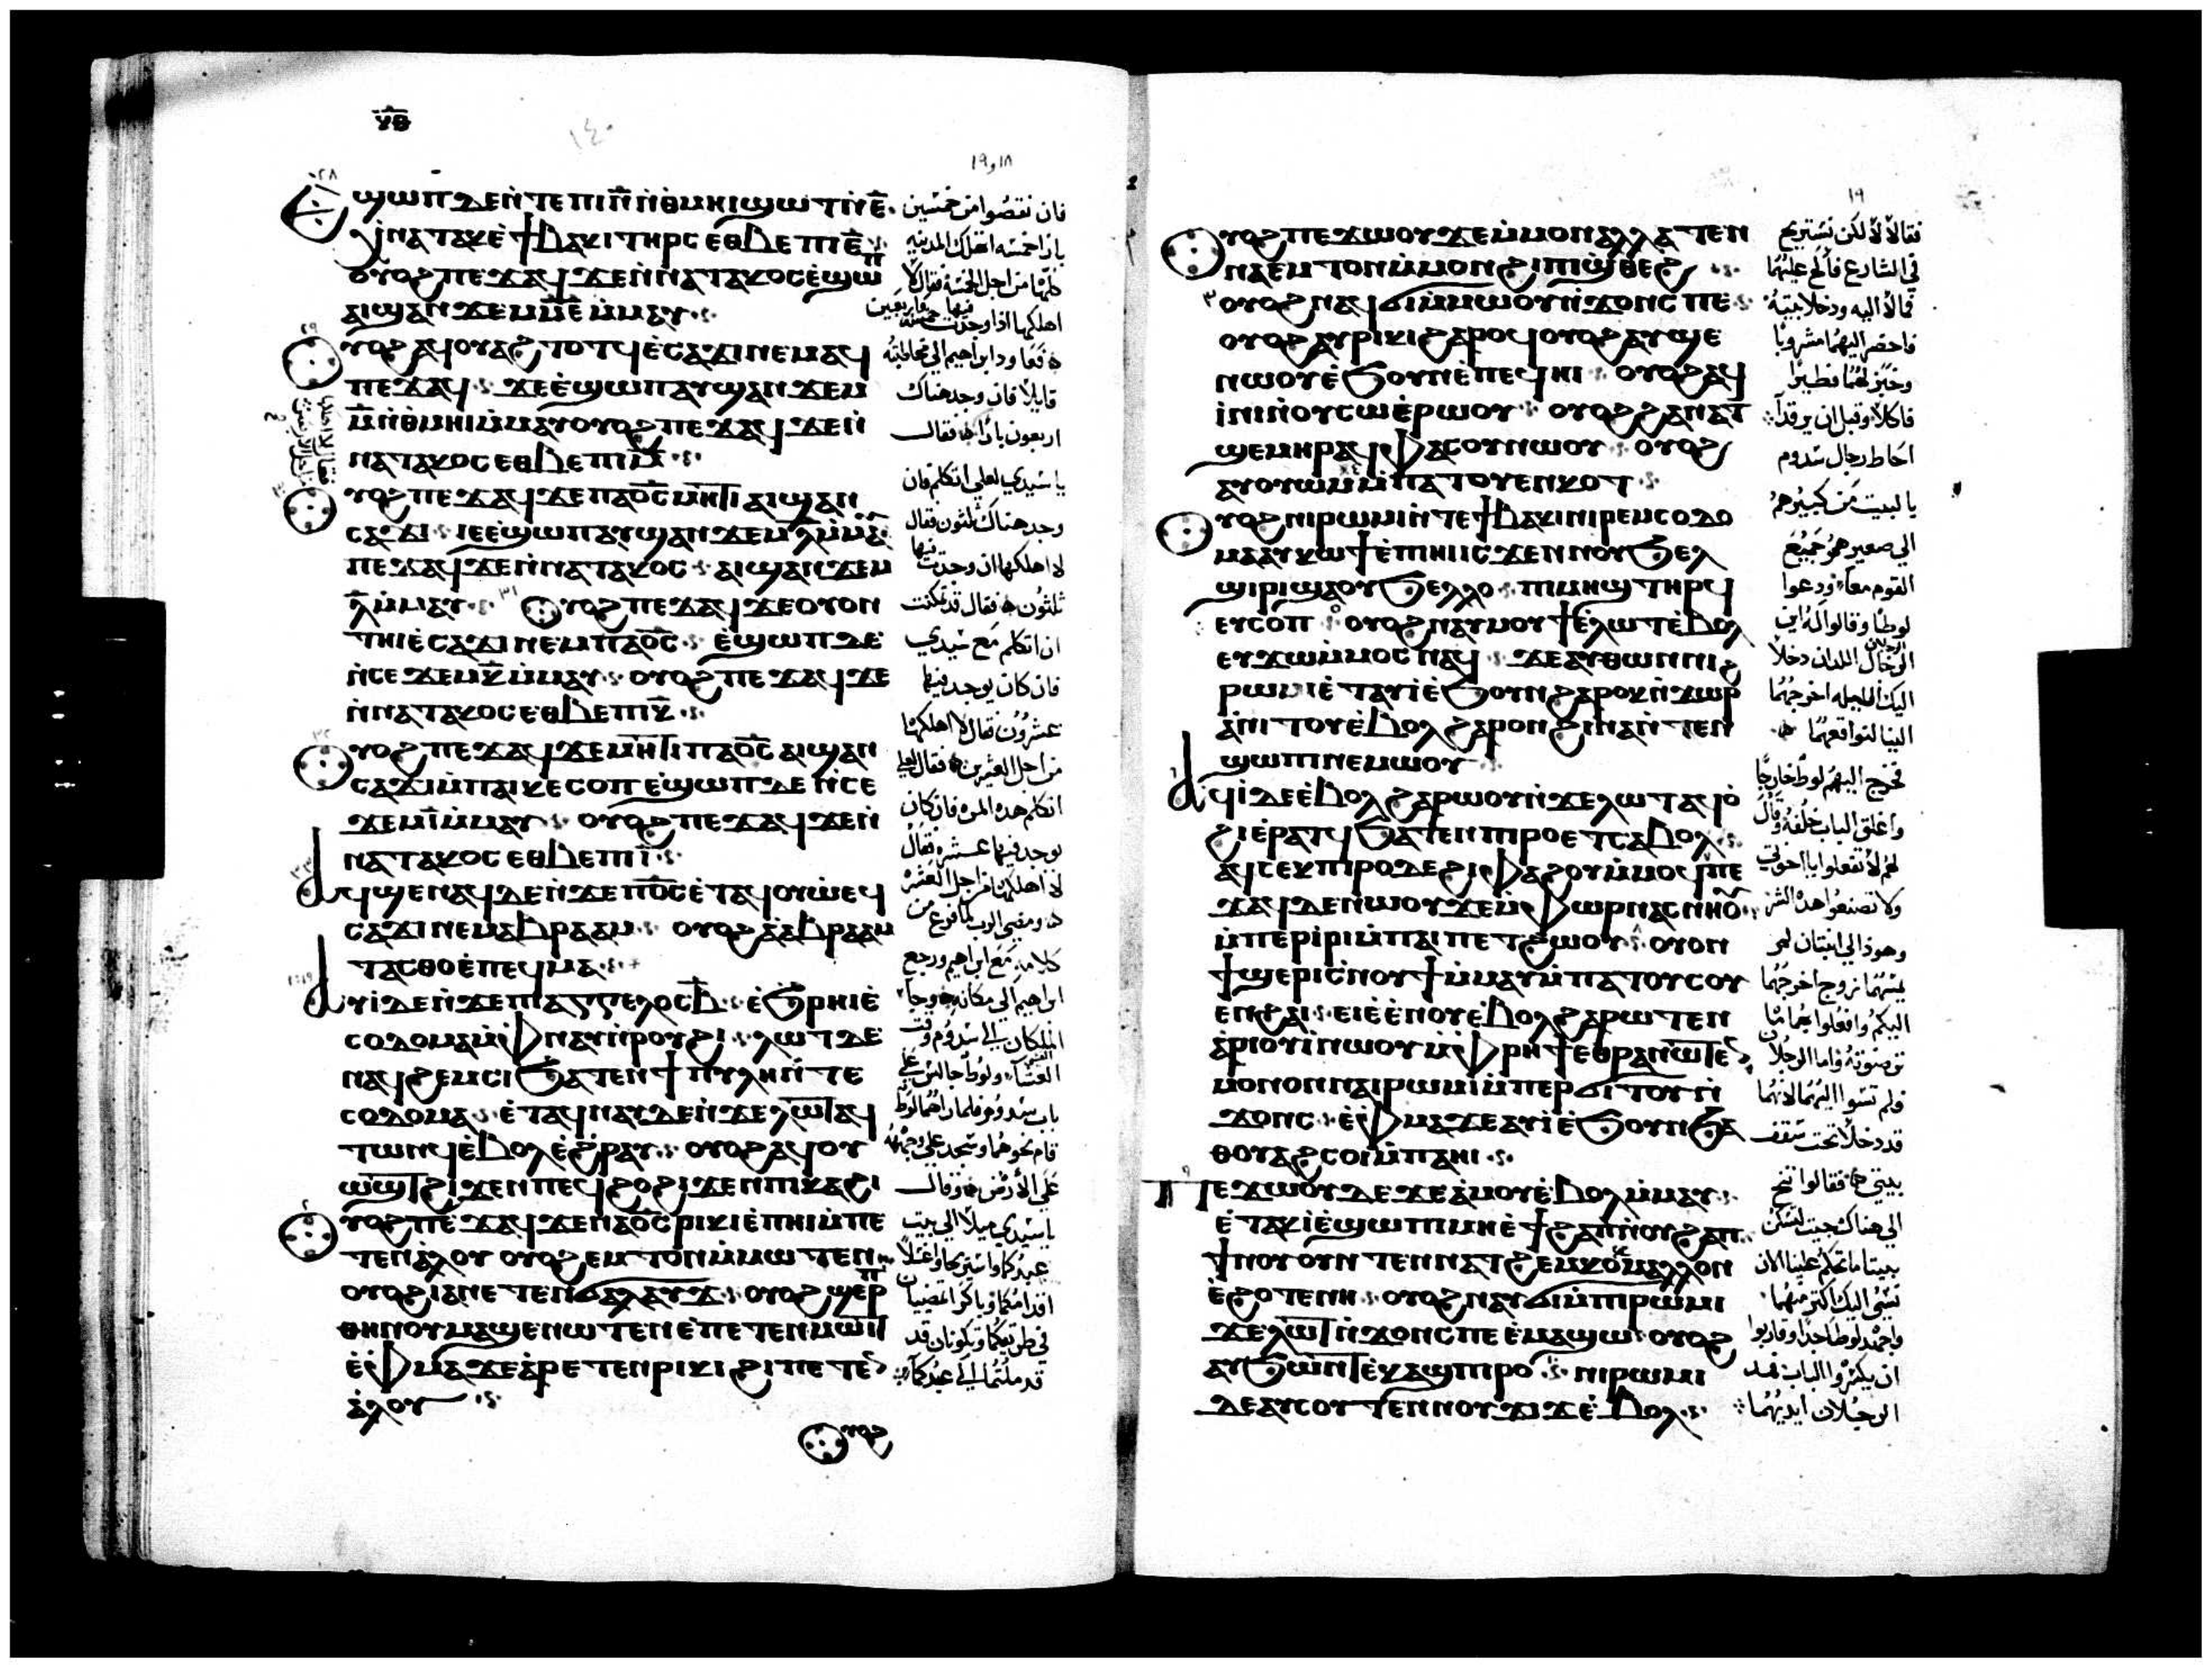 ⲩⲑ
١٤٠
١٨ و١٩
ϣⲱⲡ ⲇⲉ ⲛ̀ⲧⲉ ⲡⲓⲛ̅ ⲛ̀ⲑⲙⲏⲓ ϣⲱⲧ ⲛ̀ⲉ̅.
ⲭⲛⲁⲧⲁⲕⲉ ϯⲃⲁⲕⲓ ⲧⲏⲣⲥ ⲉⲑⲃⲉ ⲡⲓⲉ̅
ⲟⲩⲟϩ ⲡⲉϫⲁϥ ϫⲉ ⲛ̀ⲛⲁⲧⲁⲕⲟⲥ ⲉ̀ϣⲱⲡ
ⲁⲓϣⲁⲛϫⲉⲙ ⲙ̅ⲉ̅ ⲙ̀ⲙⲁⲩ
ⲟⲩⲟϩ ⲁϥⲟⲩⲁϩⲧⲟⲧϥ ⲉ̀ⲥⲁϫⲓ ⲛⲉⲙⲁϥ
ⲡⲉϫⲁϥ ϫⲉ ⲉ̀ϣⲱⲡ ⲁⲩϣⲁⲛϫⲉⲙ
ⲙ̅ ⲛ̀ⲑⲙⲏⲓ ⲙ̀ⲙⲁⲩ ⲟⲩⲟϩ ⲡⲉϫⲁϥ ϫⲉ ⲛ̀
ⲛⲁⲧⲁⲕⲟⲥ ⲉⲑⲃⲉ ⲡⲓⲙ̅
ⲟⲩⲟϩ ⲡⲉϫⲁϥ ϫⲉ ⲡⲁⲟ̅ⲥ̅ ⲙⲏϯ ⲁⲓϣⲁⲛ
ⲥⲁϫⲓ ⲓⲉ ⲉ̀ϣⲱⲡ ⲁⲩϣⲁⲛϫⲉⲙ ⲗ̅ ⲙ̀ⲙⲁⲩ
ⲡⲉϫⲁϥ ϫⲉ ⲛ̀ⲛⲁⲧⲁⲕⲟⲥ ⲁⲓϣⲁⲛϫⲉⲙ
ⲗ̅ ⲙ̀ⲙⲁⲩ ⲟⲩⲟϩ ⲡⲉϫⲁϥ ϫⲉ ⲟⲩⲟⲛ
ⲧⲏⲓ ⲉ̀ⲥⲁϫⲓ ⲛⲉⲙ ⲡⲁⲟ̅ⲥ̅ ⲉ̀ϣⲱⲡ ⲇⲉ
ⲛ̀ⲥⲉϫⲉⲙ ⲕ̅ ⲙ̀ⲙⲁⲩ ⲟⲩⲟϩ ⲡⲉϫⲁϥ ϫⲉ
ⲛ̀ⲛⲁⲧⲁⲕⲟⲥ ⲉⲑⲃⲉ ⲡⲓⲕ̅
ⲟⲩⲟϩ ⲡⲉϫⲁϥ ϫⲉ ⲙⲏϯ ⲡⲁⲟ̅ⲥ̅ ⲁⲓϣⲁⲛ
ⲥⲁϫⲓ ⲙ̀ⲡⲁⲓⲕⲉⲥⲟⲡ ⲉ̀ϣⲱⲡ ⲇⲉ ⲛ̀ⲥⲉ
ϫⲉⲙ ⲓ̅ ⲙ̀ⲙⲁⲩ ⲟⲩⲟϩ ⲡⲉϫⲁϥ ϫⲉ ⲛ̀
ⲛⲁⲧⲁⲕⲟⲥ ⲉⲑⲃⲉ ⲡⲓⲓ̅
ⲁϥϣⲉⲛⲁϥ ⲇⲉ ⲛ̀ϫⲉ ⲡⲟ̅ⲥ̅ ⲉ̀ⲧⲁϥⲟⲩⲱ ⲉϥ
ⲥⲁϫⲓ ⲛⲉⲙ ⲁⲃⲣⲁⲁⲙ ⲟⲩⲟϩ ⲁ̀ ⲁⲃⲣⲁⲁⲙ
ⲧⲁⲥⲑⲟ ⲉ̀ⲡⲉϥⲙⲁ
ⲁⲩⲓ̀ ⲇⲉ ⲛ̀ϫⲉ ⲡⲓⲁⲅⲅⲉⲗⲟⲥ ⲃ̅ ⲉ̀ϧⲣⲏⲓ ⲉ̀
ⲥⲟⲇⲟⲙⲁ ⲙ̀ⲫⲛⲁⲩ ⲛ̀ⲣⲟⲩϩⲓ ⲗⲱⲧ ⲇⲉ
ⲛⲁϥϩⲉⲙⲥⲓ ϧⲁⲧⲉⲛ ϯⲡⲩⲗⲏ ⲛ̀ⲧⲉ
ⲥⲟⲇⲟⲙⲁ ⲉ̀ⲧⲁϥⲛⲁⲩ ⲇⲉ ⲛ̀ϫⲉ ⲗⲱⲧ ⲁϥ
ⲧⲱⲛϥ ⲉ̀ⲃⲟⲗ ⲉ̀ϩⲣⲁⲩ ⲟⲩⲟϩ ⲁϥⲟⲩ
ⲱϣⲧ ϩⲓϫⲉⲛ ⲡⲉϥϩⲟ ϩⲓϫⲉⲛ ⲡⲓⲕⲁϩⲓ
ⲟⲩⲟϩ ⲡⲉϫⲁϥ ϫⲉ ⲛⲁⲟ̅ⲥ̅ ⲣⲓⲕⲓ ⲉ̀ⲡⲏⲓ ⲙ̀ⲡⲉ
ⲧⲉⲛⲁ̀ⲗⲟⲩ ⲟⲩⲟϩ ⲉⲙⲧⲟⲛ ⲙ̀ⲙⲱⲧⲉⲛ
ⲟⲩⲟϩ ⲓⲁ ⲛⲉⲧⲉⲛϭⲁⲗⲁⲩϫ ⲟⲩⲟϩ ϣⲉⲣⲡ
ⲑⲏⲛⲟⲩ ⲙⲁϣⲉⲛⲱⲧⲉⲛ ⲉ̀ⲡⲉⲧⲉⲛⲙⲱⲓⲧ
ⲉ̀ⲫⲙⲁ ϫⲉ ⲁ̀ⲣⲉⲧⲉⲛⲣⲓⲕⲓ ϩⲓ ⲡⲉⲧⲉⲛ
ⲁ̀ⲗⲟⲩ
ⲟⲩⲟϩ
فان نقصوا من خمسين
بارا خمسه اتهلك المدينه
كلها من اجل الخمسه فقال لا
اهلكها اذا وجدت فيها خمسه واربعين
فعاود ابراهيم الي مخاطبته
قايلا فان وجد هناك
اربعون بارا فقال
يا سيدي لعلي اتكلم فان
وجد هناك ثلثون فقال
لا اهلكها ان وجدت فيها
ثلثون فقال قد تمكنت
ان اتكلم مع سيدي
فان كان يوجد فيها
عشرون فقال لا اهلكها
من اجل العشرين فقال لعلي
اتكلم هده المره فان كان
يوجد فيها عشره فقال
لا اهلكها من اجل العشره
ومضي الرب لما فرغ من
كلامه مع ابراهيم ورجع
ابراهيم الي مكانه وجا
الملاكان الي سدوم وقت
العشاء ولوط جالس علي
باب سدوم فلما راهما لوط
قام نحوهما وسجد علي وجهه
علي الارض وقال
يا سيدي ميلا الي بيت
عبدكما واستريحا واغسلا
اقدامكما وباكرا تمضيان
في طريقكما وتكونان قد
قد ملتما الي عبدكما
١٩
ⲟⲩⲟϩ ⲡⲉϫⲱⲟⲩ ϫⲉ ⲙ̀ⲙⲟⲛ ⲁⲗⲗⲁ ⲧⲉⲛ
ⲛⲁⲉⲙⲧⲟⲛ ⲙ̀ⲙⲟⲛ ϩⲓ ⲡⲓϣⲑⲉϩ
ⲟⲩⲟϩ ⲛⲁϥϭⲓ ⲙ̀ⲙⲱⲟⲩ ⲛ̀ϫⲟⲛⲥ ⲡⲉ
ⲟⲩⲟϩ ⲁⲩⲣⲓⲕⲓ ϩⲁⲣⲟϥ ⲟⲩⲟϩ ⲁⲩϣⲉ
ⲛⲱⲟⲩ ⲉ̀ϧⲟⲩⲛ ⲉ̀ⲡⲉϥⲏⲓ ⲟⲩⲟϩ ⲁϥ
ⲓ̀ⲛⲓ ⲛ̀ⲟⲩⲥⲱ ⲉ̀ⲣⲱⲟⲩ ⲟⲩⲟϩ ϩⲁⲛⲁⲧ
ϣⲉⲙⲏⲣ ⲁϥⲫⲁⲥⲟⲩ ⲛⲱⲟⲩ ⲟⲩⲟϩ
ⲁⲩⲟⲩⲱⲙ ⲙ̀ⲡⲁⲧⲟⲩⲉⲛⲕⲟⲧ
ⲟⲩⲟϩ ⲛⲓⲣⲱⲙⲓ ⲛ̀ⲧⲉ ϯⲃⲁⲕⲓ ⲛⲓⲣⲉⲙⲥⲟⲇⲟ
ⲙⲁ ⲁⲩⲕⲱϯ ⲉ̀ⲡⲓⲏⲓ ⲓⲥϫⲉⲛ ⲛⲟⲩϧⲉⲗ
ϣⲓⲣⲓ ϣⲁ ⲟⲩϧⲉⲗⲗⲟ ⲡⲓⲙⲏϣ ⲧⲏⲣϥ
ⲉⲩⲥⲟⲡ ⲟⲩⲟϩ ⲛⲁⲩⲙⲟⲩϯ ⲉ̀ⲗⲱⲧ ⲉ̀ⲃⲟⲗ
ⲉⲩϫⲱ ⲙ̀ⲙⲟⲥ ⲛⲁϥ ϫⲉ ⲁⲩⲑⲱⲛ ⲛⲓ
ⲣⲱⲙⲓ ⲉ̀ⲧⲁⲩⲓ̀ ⲉ̀ϧⲟⲩⲛ ϩⲁⲣⲟⲕ ⲛ̀ϫⲱⲣϩ
ⲁ̀ⲛⲓⲧⲟⲩ ⲉ̀ⲃⲟⲗ ϩⲁⲣⲟⲛ ϩⲓⲛⲁ ⲛ̀ⲧⲉⲛ
ϣⲱⲡⲓ ⲛⲉⲙⲱⲟⲩ
ⲁϥⲓ̀ ⲇⲉ ⲉ̀ⲃⲟⲗ ϩⲁⲣⲱⲟⲩ ⲛ̀ϫⲉ ⲗⲱⲧ ⲁϥⲟ̀
ϩⲓ ⲉ̀ⲣⲁⲧϥ ϧⲁⲧⲉⲛ ⲡⲓⲣⲟ ⲉⲧⲥⲁⲃⲟⲗ
ⲁϥⲥⲉⲕ ⲡⲓⲣⲟ ⲇⲉ ϩⲓⲫⲁϩⲟⲩ ⲙ̀ⲙⲟϥ ⲡⲉ
ϫⲁϥ ⲇⲉ ⲛⲱⲟⲩ ϫⲉ ⲙ̀ⲫⲱⲣ ⲛⲁⲥⲛⲏⲟⲩ
ⲙ̀ⲡⲉⲣⲓ̀ⲣⲓ ⲙ̀ⲡⲁⲓⲡⲉⲧϩⲱⲟⲩ ⲟⲩⲟⲛ
ϯϣⲉⲣⲓ ⲥ̀ⲛⲟⲩϯ ⲙ̀ⲙⲁⲩ ⲙ̀ⲡⲁⲧⲟⲩⲥⲟⲩ
ⲉⲛ ϩⲁⲓ ⲉⲓⲉ̀ⲉ̀ⲛⲟⲩ ⲉ̀ⲃⲟⲗ ϩⲁⲣⲱⲧⲉⲛ
ⲁ̀ⲣⲓⲟⲩⲓ̀ ⲛⲱⲟⲩ ⲙ̀ⲫⲣⲏϯ ⲉⲑⲣⲁⲛⲱⲧⲉⲛ
ⲙⲟⲛⲟⲛ ⲛⲁⲓⲣⲱⲙⲓ ⲙ̀ⲡⲉⲣϭⲓⲧⲟⲩ ⲛ̀
ϫⲟⲛⲥ ⲉ̀ⲫⲙⲁ ϫⲉ ⲁⲩⲓ̀ ⲉ̀ϧⲟⲩⲛ ϧⲁ
ⲑⲟⲩⲁϩⲥⲟⲓ ⲙ̀ⲡⲁⲏⲓ
ⲡⲉϫⲱⲟⲩ ⲇⲉ ϫⲉ ⲁ̀ⲙⲟⲩ ⲉ̀ⲃⲟⲗ ⲙ̀ⲙⲁⲩ
ⲉ̀ⲧⲁⲕⲓ̀ ⲉ̀ϣⲱⲡⲓ ⲙⲏ ⲉ̀ϯϩⲁⲡ ⲛ̀ⲟⲩϩⲁⲡ
ϯⲛⲟⲩ ⲟⲩⲛ ⲧⲉⲛⲛⲁⲧϩⲉⲙⲕⲟⲕ ⲙⲁⲗⲗⲟⲛ
ⲉ̀ϩⲟⲧⲉ ⲛⲏ ⲟⲩⲟϩ ⲛⲁⲩϭⲓ ⲙ̀ⲡⲓⲣⲱⲙⲓ
ϫⲉ ⲗⲱⲧ ⲛ̀ϫⲟⲛⲥ ⲡⲉ ⲉ̀ⲙⲁϣⲱ ⲟⲩⲟϩ
ⲁⲩϧⲱⲛⲧ ⲉ̀ⲕⲁϣ ⲡⲓⲣⲟ ⲛⲓⲣⲱⲙⲓ
ⲇⲉ ⲁⲩⲥⲟⲩⲧⲉⲛ ⲛⲟⲩϫⲓϫ ⲉ̀ⲃⲟⲗ
فقالا لا لكن نستريح
في الشارع فالح عليهما
فمالا اليه ودخلا بيته
فاحضر اليهما مشروبا
وخبز لهما فطيرا
فاكلا وقبل ان يرقدا
احاط رجال سدوم
بالبيت من كبيرهم
الي صغيرهم جميع
القوم معا ودعوا
لوطا وقالوا له اين
الرجلان اللدان دخلا
اليك الليله اخرجهما
الينا لنواقعهما
فخرج اليهم لوط خارجا
واغلق الباب خلفه وقال
لهم لا تفعلوا يا اخوتي
ولا تصنعوا هدا الشر
وهودا لي ابنتان لم
يمسهما زوج اخرجهما
اليكم وافعلوا بهما ما
ترضونه واما الرجلان
فلم تسوا اليهما لانهما
قد دخلا تحت سقف
بيتي فقالوا تنح
الي هناك جيت لتسكن
بيننا ما تحكم علينا الان
نسي اليك اكتر منهما
واجهد لوطا جدا وقاربوا
ان يكسروا الباب فمد
الرجلان ايديهما